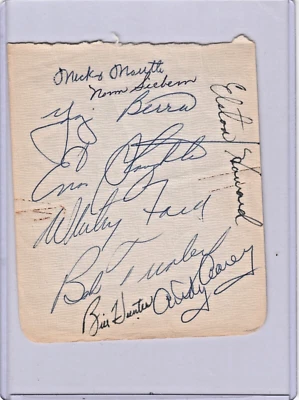 Micky Mantle
Norm Siebern
Yogi Berra
Elston Howard
Enos Slaughter
Whitey Ford
Bob Turley
Bill Hunter
Andy Carey